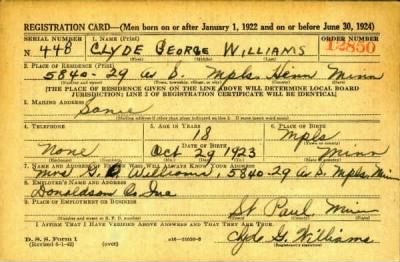 REGISTRATION CARD—(Men born on or after January 1, 1922 and on or before June 30, 1924)
SERIAL NUMBER 1. NAME (Print) ORDER NUMBER
N 448 CLYDE GEORGE WILLIAMS 12850
(First) (Middle) (Last)
2. PLACE OF RESIDENCE (Print)
5840-29 Av S. Mpls. Henn Minn
[THE PLACE OF RESIDENCE GIVEN ON THE LINE ABOVE WILL DETERMINE LOCAL BOARD
JURISDICTION; LINE 2 OF REGISTRATION CERTIFICATE WILL BE IDENTICAL]
3. MAILING ADDRESS
Same
[Mailing address if other than place indicated on line 2. If same insert word same]
4. TELEPHONE 5. AGE IN YEARS 6. PLACE OF BIRTH
18 Mpls
DATE OF BIRTH
None Oct 29 1923 Minn
7. NAME AND ADDRESS OF PERSON WHO WILL ALWAYS KNOW YOUR ADDRESS
Mrs G. Williams, 5840-29 Av S. Mpls, Minn
8. EMPLOYER'S NAME AND ADDRESS
Donaldson Co Inc
9. PLACE OF EMPLOYMENT OR BUSINESS
St Paul Minn
I AFFIRM THAT I HAVE VERIFIED ABOVE ANSWERS AND THAT THEY ARE TRUE.
D. S. S. Form 1
(Revised 6-1-42) Clyde G. Williams